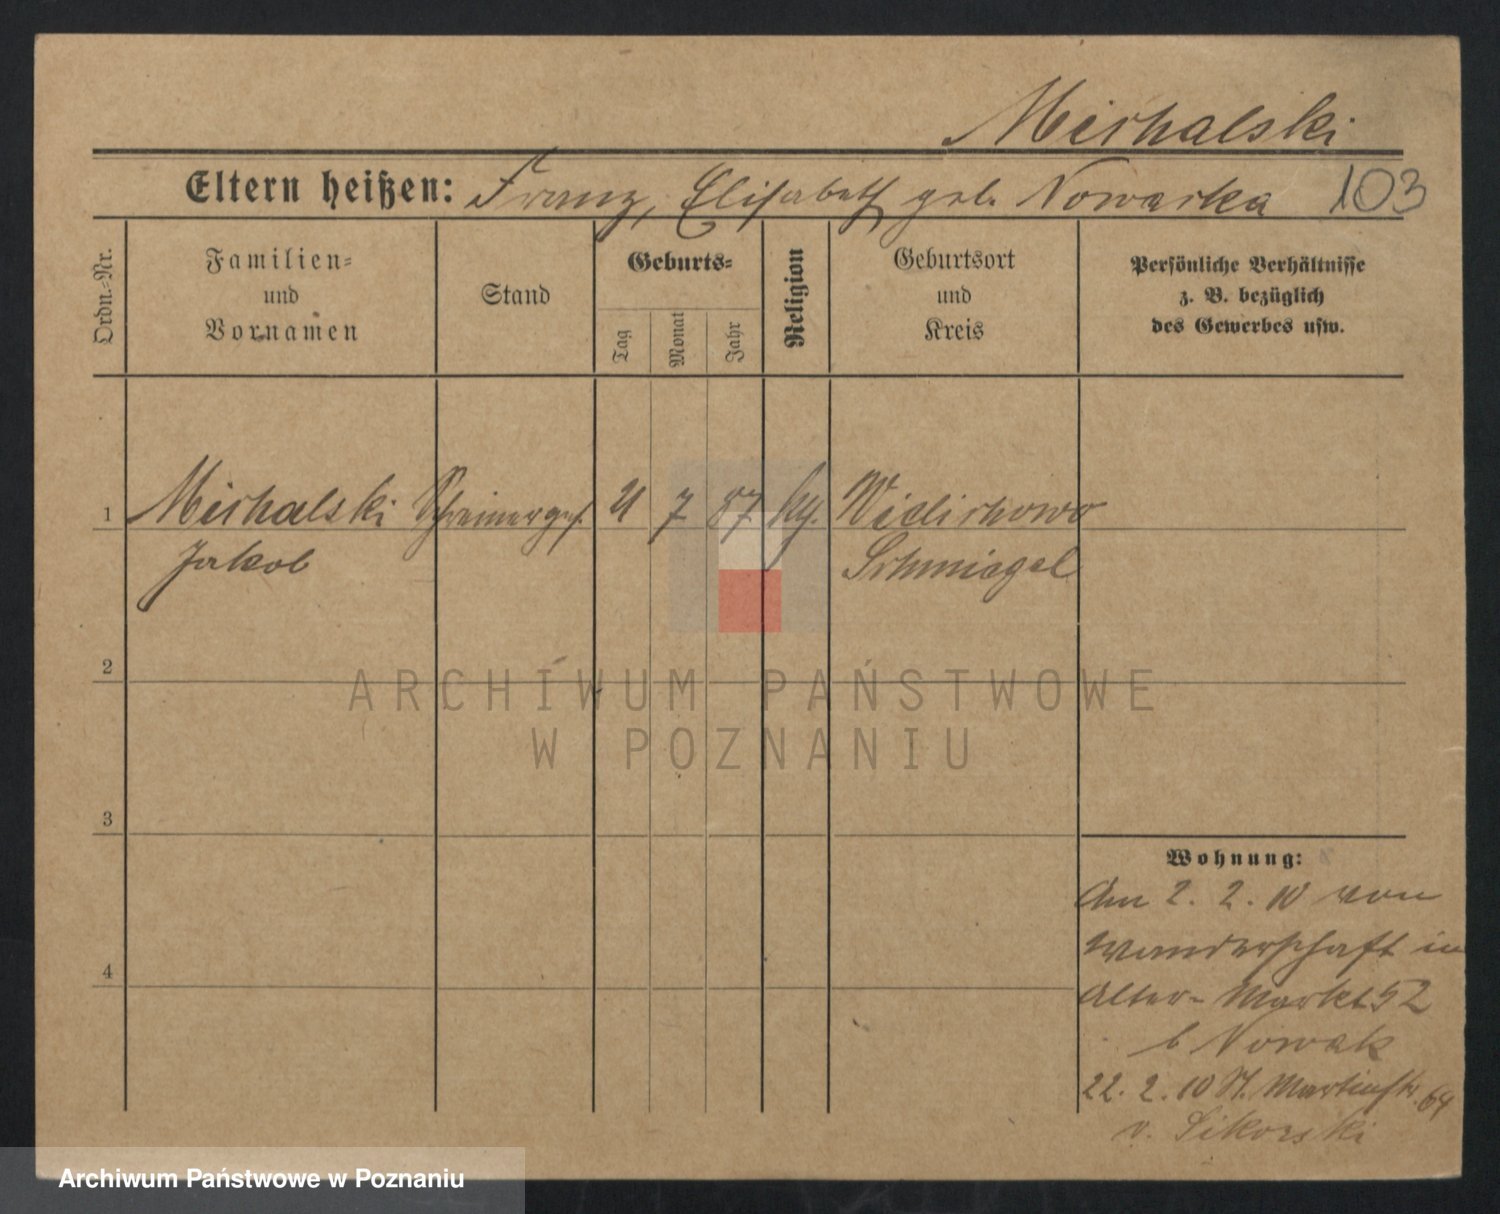 Michalski
Eltern heißen: Franz, Elisabeth geb. Nowacka 103
Ordn.-Nr.
Familien-
und
Vornamen
Stand
Geburts-
Tag
Monat
Jahr
Religion
Geburtsort
und
Kreis
Persönliche Verhältnisse
z. B. bezüglich
des Gewerbes usw.
1 Michalski Schreinerges. 21 7 87 kg. Wielichowo
Jakob Schmiegel
2
ARCHIWUM PAŃSTWOWE
W POZNANIU
3
Wohnung:
Am 2. 2. 10 von
Wanderschaft in
4
Alter-Markt 52
b Nowak
22. 2. 10 St. Martinstr. 64
v. Sikorski
Archiwum Państwowe w Poznaniu